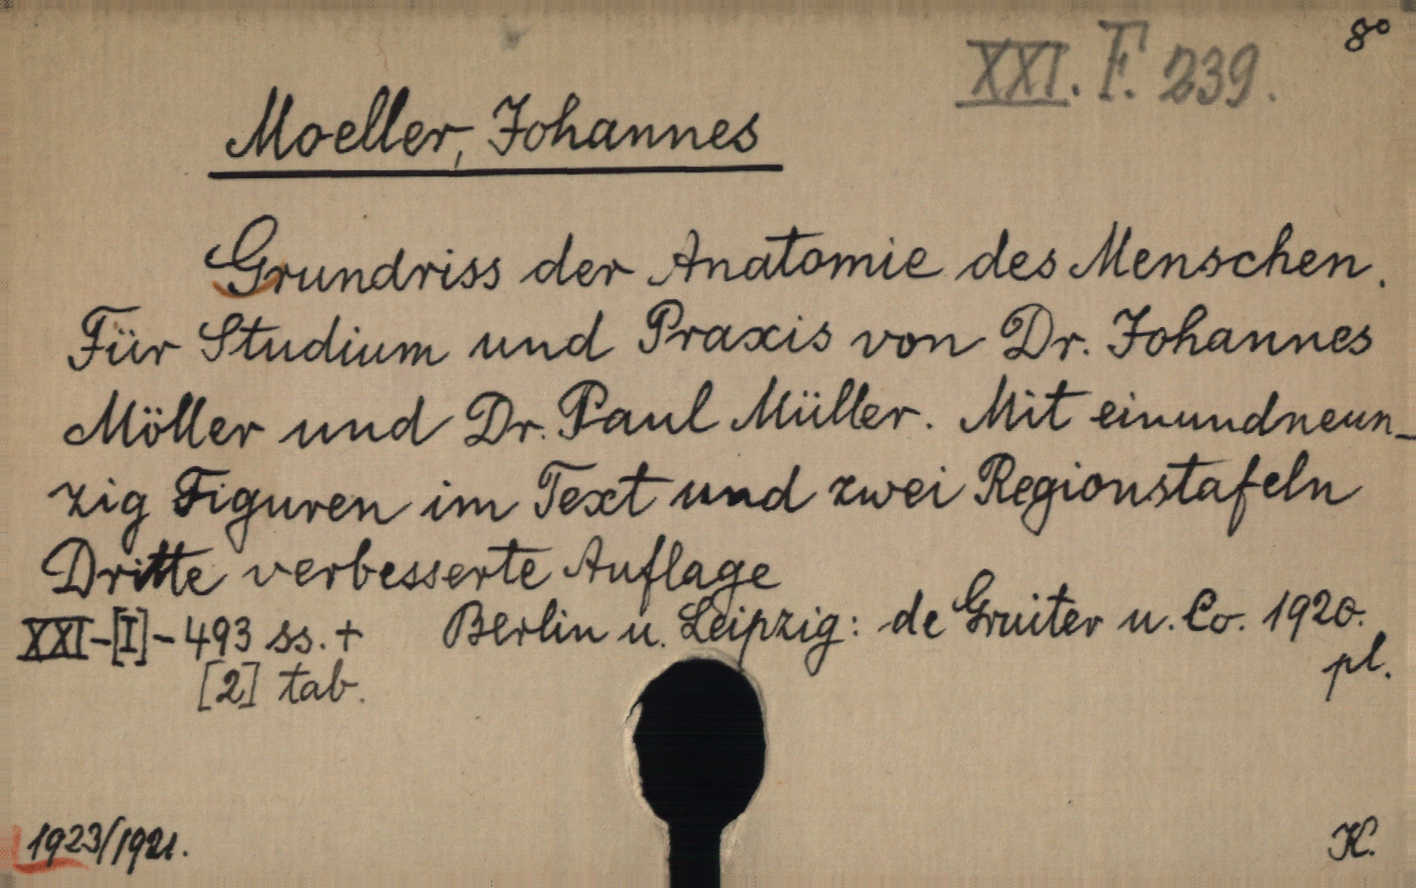 8°
XXI. F. 239.
Moeller, Johannes
Grundriss der Anatomie des Menschen.
Für Studium und Praxis von Dr. Johannes
Möller und Dr. Paul Müller. Mit einundneun-
zig Figuren im Text und zwei Regionstafeln
Dritte verbesserte Auflage
XXI-[I]-493 ss. + Berlin u. Leipzig: de Gruiter u. Co. 1920.
[2] tab. pl.
1923/1921. K.